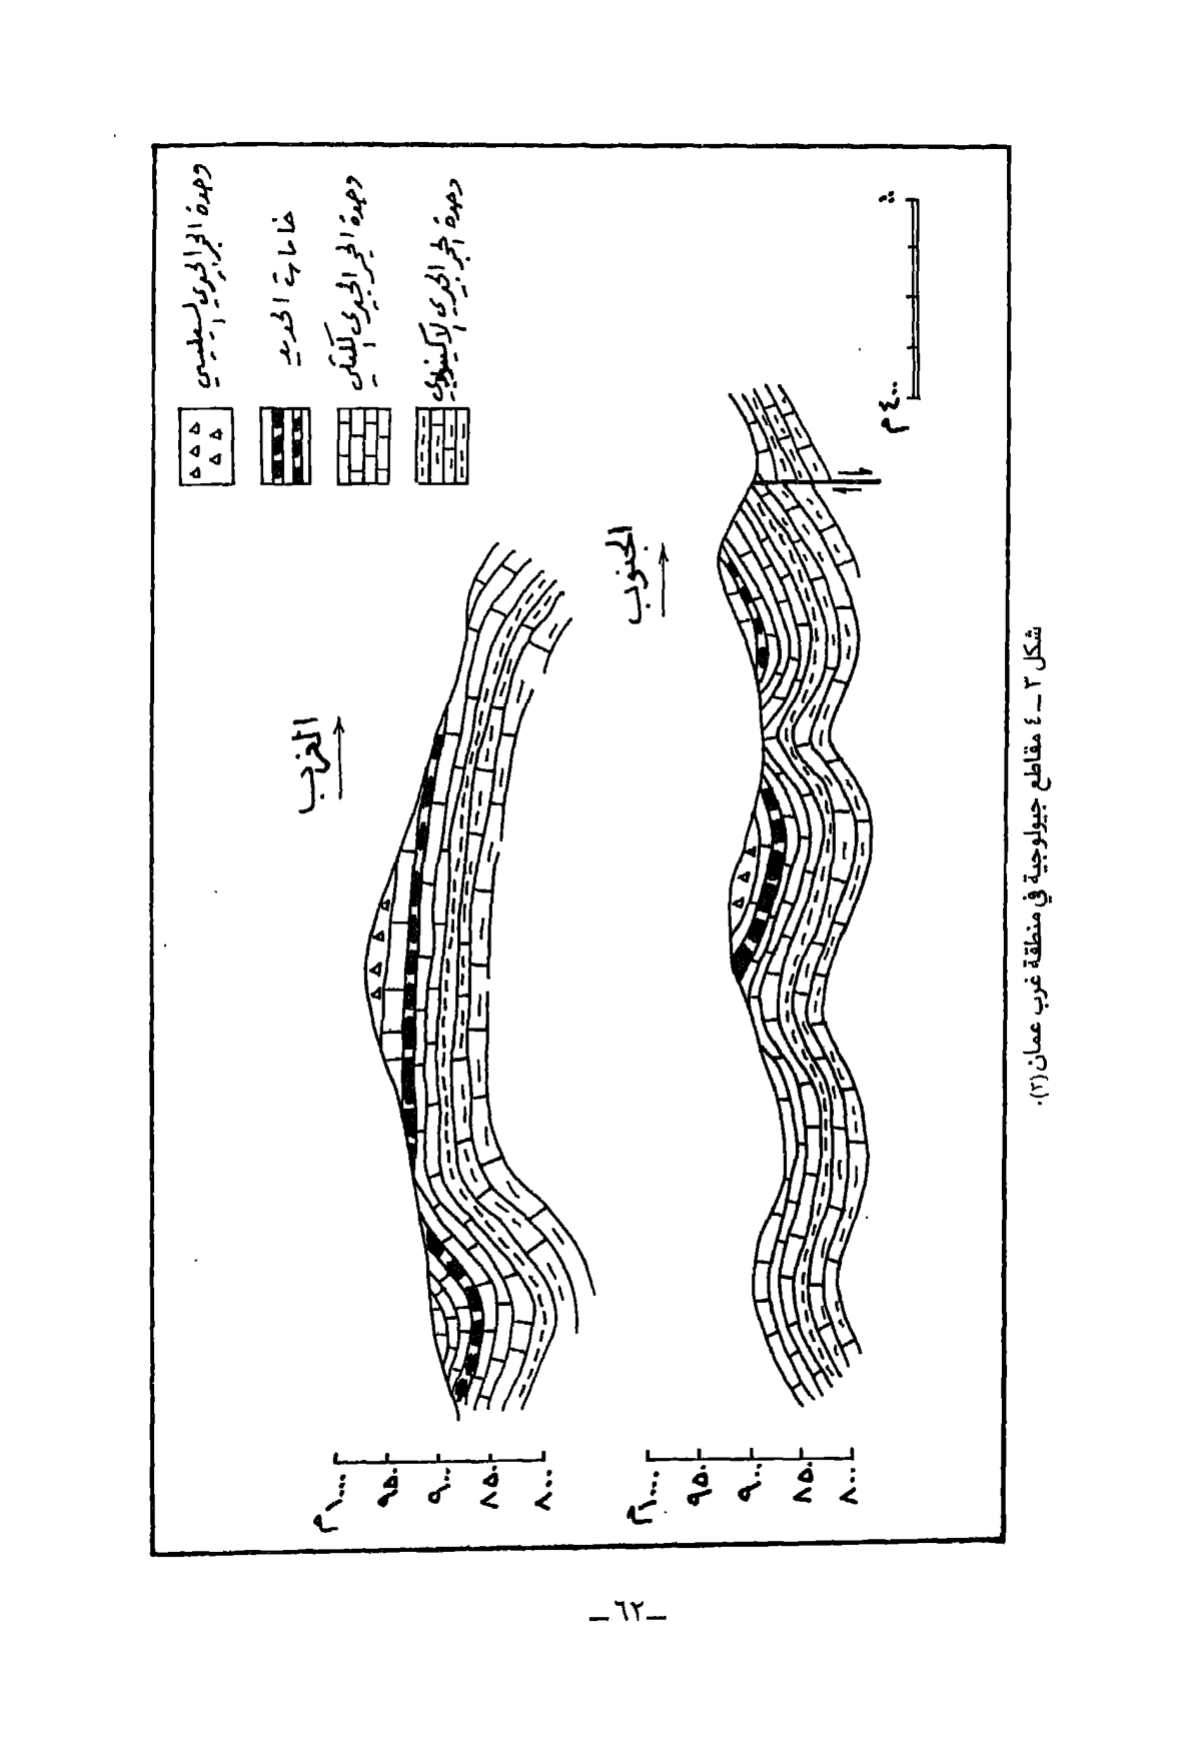 وحدة الحجر الجيري السيليسي
خامات الحديد
وحدة الحجر الجيري الكتلي
وحدة الحجر الجيري الاكينويدي
الغرب
١٠٠٠م
٩٥٠
٩٠٠
٨٥٠
٨٠٠
الجنوب
١٠٠٠م
٩٥٠
٩٠٠
٨٥٠
٨٠٠
٤٠٠م
شكل ٣ – ٤ مقاطع جيولوجية في منطقة غرب عمان (٣).
– ٦٢ –